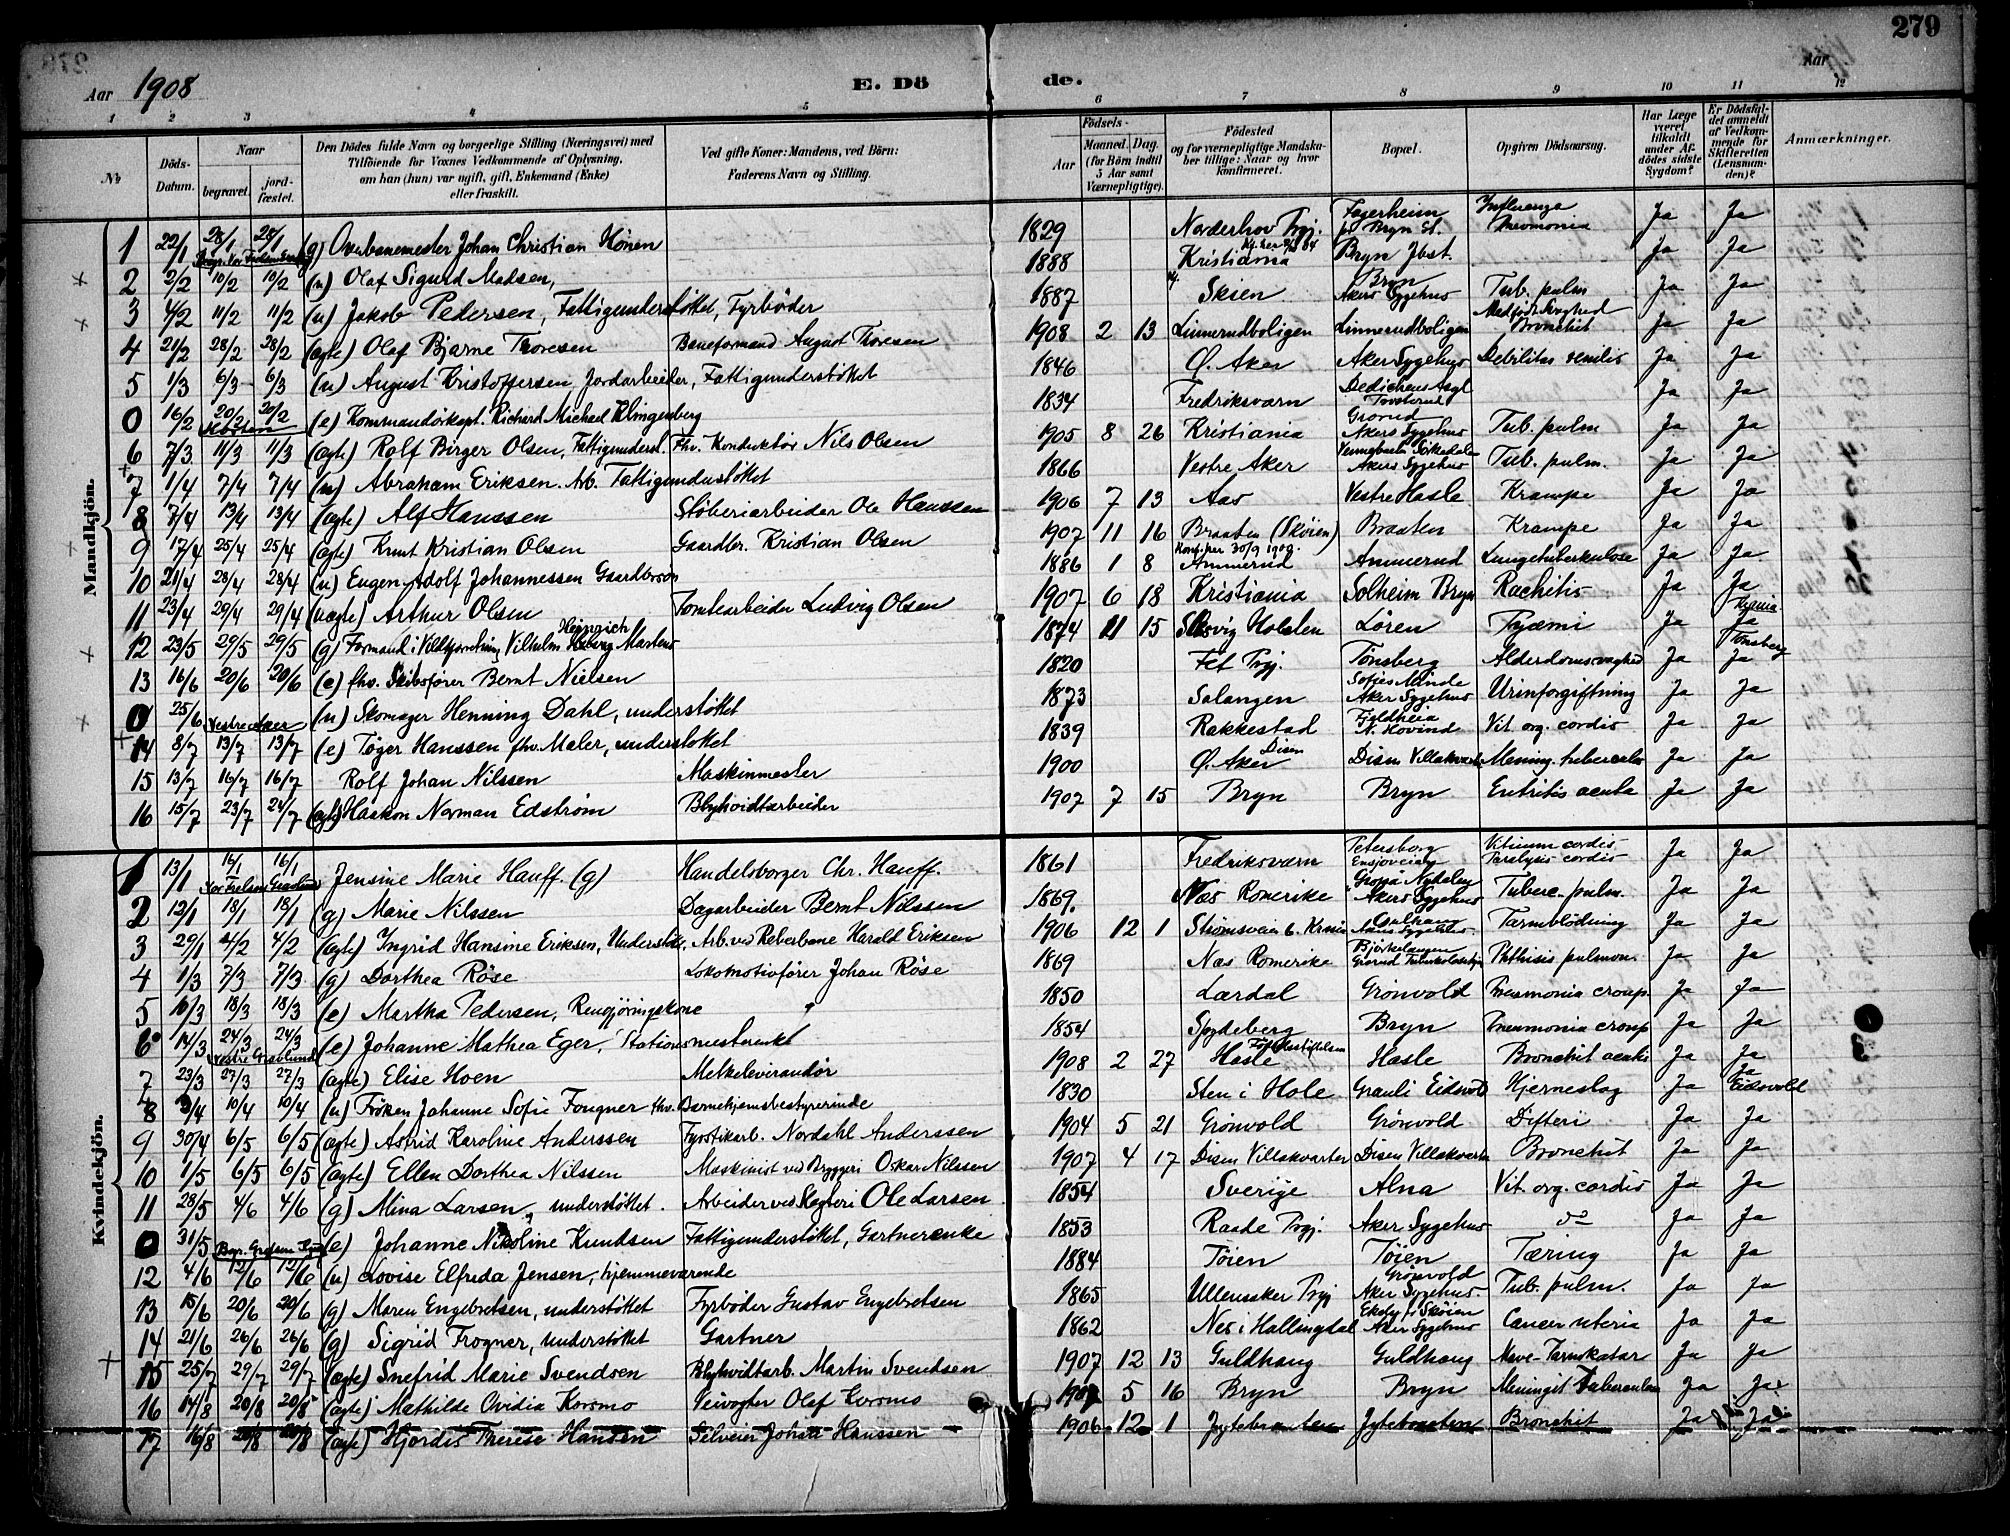 279
Aar 1908 E. Dö de. Aar
1 2 3 4 5 6 7 8 9 10 11 12
№
Döds-Datum.
Naar
begravet. jord-fæstet.
Den Dödes fulde Navn og borgerlige Stilling (Næringsvei) med
Tilföiende for Voxnes Vedkommende af Oplysning,
om han (hun) var ugift, gift, Enkemand (Enke)
eller fraskilt.
Ved gifte Koner: Mandens, ved Börn:
Faderens Navn og Stilling.
Födsels-
Aar
Maaned. Dag.
(for Börn indtil
5 Aar samt
Værnepligtige).
Födested
og for værnepligtige Mandska-
ber tillige: Naar og hvor
konfirmeret.
Bopæl.
Opgiven Dödsaarsag.
Har Læge
været
tilkaldt
under Af-
dödes sidste
Sygdom?
Er Dödsfal-
det anmeldt
af Vedkom-
mende for
Skifteretten
(Lensman-
den)?
Anmærkninger.
Mandkjön.
1 22/1 28/1 28/1 (g) Overbanemester Johan Christian Hönen 1829 Norderhov Prgj. Fagerheim pr Bryn St. Influenza Pneumonia Ja Ja
2 2/2 10/2 10/2 (u) Olaf Sigurd Madsen, 1888 Kristiania Bryn Ja Ja
3 4/2 11/2 11/2 (u) Jakob Pedersen, Fattigunderstøttet, Fyrbøder 1887 Skien Bryn Akers Sygehus Tub. pulm Ja Ja
4 21/2 28/2 28/2 (ægte) Olaf Bjarne Thoresen Baneformand August Thoresen 1908 2 13 Linnerudboligen Linnerudboligen Medfödt Svaghed Bronchit Ja Ja
5 1/3 6/3 6/3 (u) August Kristoffersen, Jordarbeider, Fattigunderstøttet 1846 Ø. Aker Aker Sygehus Debilitas senilis Ja Ja
0 16/2 20/2 20/2 (e) Kommandörkapt. Richard Michael Klingenberg 1834 Fredriksværn Dedichens Asyl Ja Ja
6 7/3 11/3 11/3 (ægte) Rolf Birger Olsen, Fattigunderst. Fhv. Konduktør Nils Olsen 1905 8 26 Kristiania Grorud Akers Sygehus Tub. pulm Ja Ja
7 1/4 7/4 7/4 (u) Abraham Eriksen. Arb. Fattigunderstøttet 1866 Vestre Aker Akers Sygehus Tub. pulm. Ja Ja
8 7/4 13/4 13/4 (ægte) Alf Hanssen Støberiarbeider Ole Hanssen 1906 7 13 Aas Vestre Hasle Krampe Ja Ja
9 17/4 25/4 25/4 (ægte) Knut Kristian Olsen Gaardbr. Kristian Olsen 1907 11 16 Braaten (Skøien) Braaten Krampe Ja Ja
10 21/4 28/4 28/4 (u) Eugen Adolf Johannessen Gaardbrsøn 1886 1 8 Ammerud Ammerud Lungetuberkulose Ja Ja
11 23/4 29/4 29/4 (uægte) Arthur Olsen Tomtearbeider Ludvig Olsen 1907 6 18 Kristiania Solheim Bryn Rachitis Ja Ja
12 23/5 29/5 29/5 (g) Formand i Vildtforretning Vilhelm Heinrich Martens 1874 11 15 Slesvig Holsten Løren Pyæmi Ja Ja
13 16/6 20/6 20/6 (e) fhv. Skibsfører Bernt Nielsen 1820 Fet Prgj. Tønsberg Alderdomssvaghed Ja Ja Tønsberg
0 25/6 Vestre Aker (u) Skomager Henning Dahl, understøttet 1873 Salangen Sofies Minde Aker Sygehus Urinforgiftning Ja Ja
14 8/7 13/7 13/7 (e) Tøger Hanssen fhv. Maler, understøttet 1839 Rakkestad Fjeldheia N. Hovind Vit. org. cordis Ja Ja
15 13/7 16/7 16/7 Rolf Johan Nilssen Maskinmester 1900 Ø. Aker Disen Disen Villakvarter Mening. tubercul. Ja Ja
16 15/7 23/7 24/7 (ægte) Haakon Norman Edstrøm Blyhvidtarbeider 1907 7 15 Bryn Bryn Entritis acuta Ja Ja
Kvindekjön.
1 13/1 16/1 16/1 Vor Frelsers Gravlund Jensine Marie Hauff (g) Handelsborger Chr. Hauff. 1861 Fredriksværn Petersborg Ensjøveien Vitium cordis Paralysis cordis Ja Ja
2 12/1 18/1 18/1 (g) Marie Nilssen Dagarbeider Bernt Nilssen 1869. Næs Romerike Akers Sygehus Tuberc. pulm. Ja Ja
3 29/1 4/2 4/2 (ægte) Ingrid Hansine Eriksen, Underst. Arb. ved Reberbane Harald Eriksen 1906 12 1 Strømsveien 6. Krania Aker Sygehus Tarmblødning Ja Ja
4 1/3 7/3 7/3 (g) Dorthea Røse Lokomotivfører Johan Røse 1869 Næs Romerike Bjørkelangen Grorud Phthisis pulmon. Ja Ja
5 10/3 18/3 18/3 (e) Martha Pedersen, Rengjøringskone 1850 Lærdal Grønvold Pneumonia croup. Ja Ja
6 14/3 24/3 24/3 Vestre Gravlund (e) Johanne Mathea Eger, Stationsmesterenke 1854 Spydeberg Bryn Pneumonia croup Ja Ja
7 23/3 27/3 27/3 (ægte) Elise Hoen Melkeleverandør 1908 2 27 Hasle Fødselsstiftelsen Hasle Bronchit acuta Ja Ja
8 3/4 10/4 10/4 (u) Frøken Johanne Sofie Fougner fhv. Barnehjemsbestyrerinde 1830 Sten i Hole Grauli Eidsvold Hjerneslag Ja Ja Eidsvold
9 30/4 6/5 6/5 (ægte) Astrid Karoline Anderssen Fyrstikarb. Nordahl Anderssen 1904 5 21 Grønvold Grønvold Difteri Ja Ja
10 1/5 6/5 6/5 (ægte) Ellen Dorthea Nilssen Maskinist ved Bryggeri Oskar Nilssen 1907 4 17 Disen Villakvarter Disen Villakvarter Bronchit Ja Ja
11 28/5 4/6 4/6 (g) Mina Larsen, understøttet. Arbeider ved Ole Larsen 1854 Sverige Alna Vit. org. cordis Ja Ja
0 31/5 (e) Johanne Nikoline Knudsen Fattigunderstøttet, Gartnerenke 1853 Raade Prgj. Aker Sygehus do Ja Ja
12 4/6 12/6 12/6 (u) Lovise Elfreda Jensen, hjemmeværende 1884 Tøien Tøien Tæring Ja Ja
13 15/6 20/6 20/6 (g) Maren Engebretsen, understøttet Fyrbøder Gustav Engebretsen 1865 Ullensaker Prgj Grønvold Aker Sygehus Tub. pulm. Ja Ja
14 21/6 26/6 26/6 (g) Sigrid Frogner, understøttet Gartner 1862 Nes i Hallingdal Ekely i Skøien Aker Sygehus Cancer uteria Ja Ja
15 25/7 29/7 29/7 (ægte) Snefrid Marie Svendsen Blyhvidtarb. Martin Svendsen 1907 12 13 Guldhaug Guldhaug Mave-Tarmkatar Ja Ja
16 14/8 20/8 20/8 (ægte) Mathilde Ovidia Korsmo Veivogter Olaf Korsmo 1907 5 16 Bryn Bryn Meningit Tuberculosa Ja Ja
17 16/8 20/8 20/8 (ægte) Hjørdis Therese Hansen Selveier Johan Hanssen 1906 12 1 Jytebraaten Jytebraaten Bronchit Ja Ja